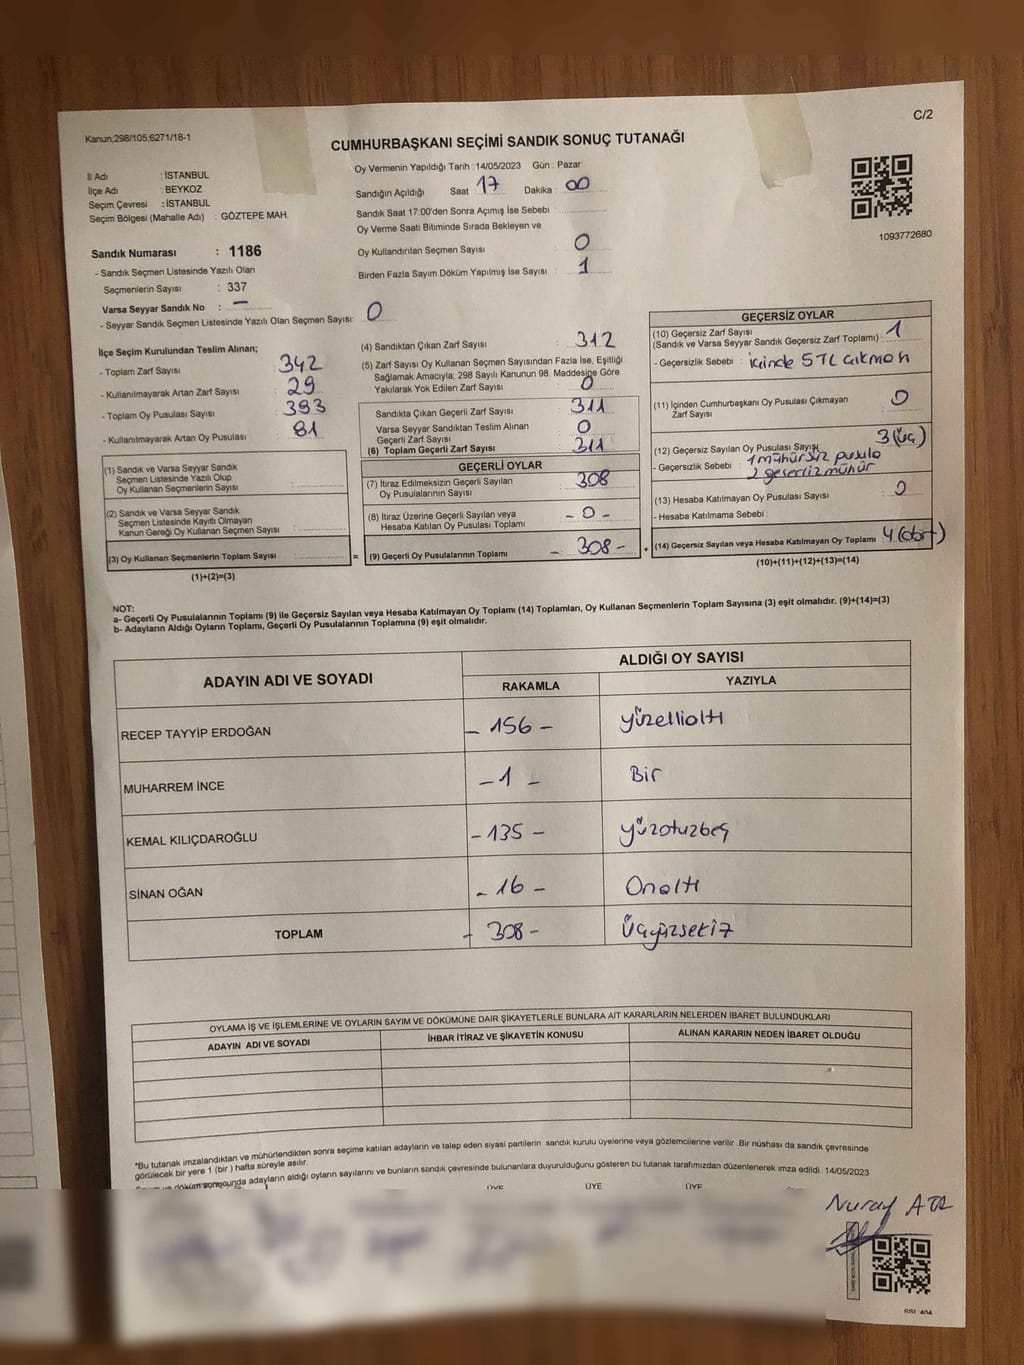 C/2
Kanun;298/105;6271/18-1
CUMHURBAŞKANI SEÇİMİ SANDIK SONUÇ TUTANAĞI
İl Adı : İSTANBUL
İlçe Adı : BEYKOZ
Seçim Çevresi : İSTANBUL
Seçim Bölgesi (Mahalle Adı) : GÖZTEPE MAH.
Sandık Numarası : 1186
- Sandık Seçmen Listesinde Yazılı Olan
Seçmenlerin Sayısı : 337
Varsa Seyyar Sandık No : —
- Seyyar Sandık Seçmen Listesinde Yazılı Olan Seçmen Sayısı: 0
Oy Vermenin Yapıldığı Tarih : 14/05/2023 Gün : Pazar
Sandığın Açıldığı Saat : 17 Dakika : 00
Sandık Saat 17:00'den Sonra Açımış İse Sebebi :
Oy Verme Saati Bitiminde Sırada Bekleyen ve
Oy Kullandırılan Seçmen Sayısı : 0
Birden Fazla Sayım Döküm Yapılmış İse Sayısı : 1
1093772680
İlçe Seçim Kurulundan Teslim Alınan;
- Toplam Zarf Sayısı : 342
- Kullanılmayarak Artan Zarf Sayısı : 29
- Toplam Oy Pusulası Sayısı : 393
- Kullanılmayarak Artan Oy Pusulası : 81
(1) Sandık ve Varsa Seyyar Sandık
Seçmen Listesinde Yazılı Olup
Oy Kullanan Seçmenlerin Sayısı :
(2) Sandık ve Varsa Seyyar Sandık
Seçmen Listesinde Kayıtlı Olmayan
Kanun Gereği Oy Kullanan Seçmen Sayısı :
(3) Oy Kullanan Seçmenlerin Toplam Sayısı :
(1)+(2)=(3)
=
(4) Sandıktan Çıkan Zarf Sayısı : 312
(5) Zarf Sayısı Oy Kullanan Seçmen Sayısından Fazla İse, Eşitliği
Sağlamak Amacıyla; 298 Sayılı Kanunun 98. Maddesine Göre
Yakılarak Yok Edilen Zarf Sayısı : 0
Sandıkta Çıkan Geçerli Zarf Sayısı : 311
Varsa Seyyar Sandıktan Teslim Alınan
Geçerli Zarf Sayısı : 0
(6) Toplam Geçerli Zarf Sayısı : 311
GEÇERLİ OYLAR
(7) İtiraz Edilmeksizin Geçerli Sayılan
Oy Pusulalarının Sayısı : 308
(8) İtiraz Üzerine Geçerli Sayılan veya
Hesaba Katılan Oy Pusulası Toplamı : - 0 -
(9) Geçerli Oy Pusulalarının Toplamı : - 308 -
+
GEÇERSİZ OYLAR
(10) Geçersiz Zarf Sayısı
(Sandık ve Varsa Seyyar Sandık Geçersiz Zarf Toplamı) : 1
- Geçersizlik Sebebi : içinde 5 TL çıkması
(11) İçinden Cumhurbaşkanı Oy Pusulası Çıkmayan
Zarf Sayısı : 0
(12) Geçersiz Sayılan Oy Pusulası Sayısı 3 (üç)
- Geçersizlik Sebebi : 1 mühürsüz pusula
2 geçersiz mühür
(13) Hesaba Katılmayan Oy Pusulası Sayısı : 0
- Hesaba Katılmama Sebebi :
(14) Geçersiz Sayılan veya Hesaba Katılmayan Oy Toplamı : 4 (dört)
(10)+(11)+(12)+(13)=(14)
NOT:
a- Geçerli Oy Pusulalarının Toplamı (9) ile Geçersiz Sayılan veya Hesaba Katılmayan Oy Toplamı (14) Toplamları, Oy Kullanan Seçmenlerin Toplam Sayısına (3) eşit olmalıdır. (9)+(14)=(3)
b- Adayların Aldığı Oyların Toplamı, Geçerli Oy Pusulalarının Toplamına (9) eşit olmalıdır.
ADAYIN ADI VE SOYADI
ALDIĞI OY SAYISI
RAKAMLA YAZIYLA
RECEP TAYYİP ERDOĞAN - 156 - yüzellialtı
MUHARREM İNCE - 1 - Bir
KEMAL KILIÇDAROĞLU - 135 - yüzotuzbeş
SİNAN OĞAN - 16 - Onaltı
TOPLAM - 308 - Üçyüzsekiz
OYLAMA İŞ VE İŞLEMLERİNE VE OYLARIN SAYIM VE DÖKÜMÜNE DAİR ŞİKAYETLERLE BUNLARA AİT KARARLARIN NELERDEN İBARET BULUNDUKLARI
ADAYIN ADI VE SOYADI İHBAR İTİRAZ VE ŞİKAYETİN KONUSU ALINAN KARARIN NEDEN İBARET OLDUĞU
*Bu tutanak imzalandıktan ve mühürlendikten sonra seçime katılan adayların ve talep eden siyasi partilerin sandık kurulu üyelerine veya gözlemcilerine verilir. Bir nüshası da sandık çevresinde
görülecek bir yere 1 (bir) hafta süreyle asılır.
döküm sonucunda adayların aldığı oyların sayılarını ve bunların sandık çevresinde bulunanlara duyurulduğunu gösteren bu tutanak tarafımızdan düzenlenerek imza edildi. 14/05/2023
ÜYE ÜYE ÜYE
Nuray